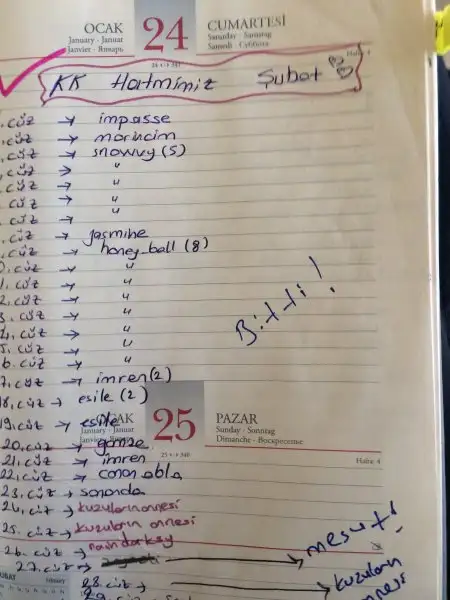 OCAK
January · Januar
Janvier · Январь
24
CUMARTESİ
Saturday · Samstag
Samedi · Суббота
24 + 341
Hafta 4
KK Hatmimiz Şubat
.cüz → impasse
.cüz → marhcim
.cüz → snowvy (5)
.cüz → "
.cüz → "
.cüz → "
.cüz → "
.cüz → jasmine
.cüz → honey_ball (8)
0.cüz → "
1.cüz → "
2.cüz → "
3.cüz → "
4.cüz → "
5.cüz → "
6.cüz → "
Bitti!
7.cüz → imren (2)
18.cüz → esile (2)
19.cüz → esile
OCAK
January · Januar
Janvier · Январь
25
PAZAR
Sunday · Sonntag
Dimanche · Воскресенье
25 + 340
Hafta 4
20.cüz → gamze
21.cüz → imren
22.cüz → canan abla
23.cüz → sananda
24.cüz → kuzularin annesi
25.cüz → kuzuların annesi
26.cüz →
27.cüz → mesut!
28.cüz → kuzuların
nnesi
29.cüz